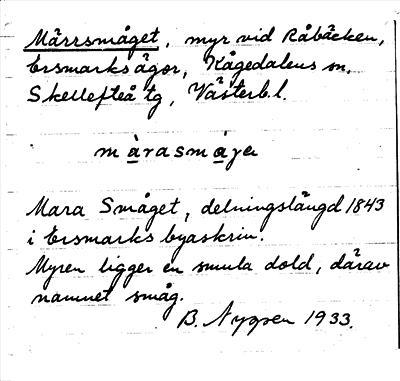 Märrsmåget, myr vid Råbäcken,
Ersmarks ägor, Kågedalens sn,
Skellefteå tg, Västerb. l.
màrasmàge
Mara Småget, delningslängd 1843
i Ersmarks byaskrin.
Myren ligger en smula dold, därav
namnet småg.
B. Nygren 1933.